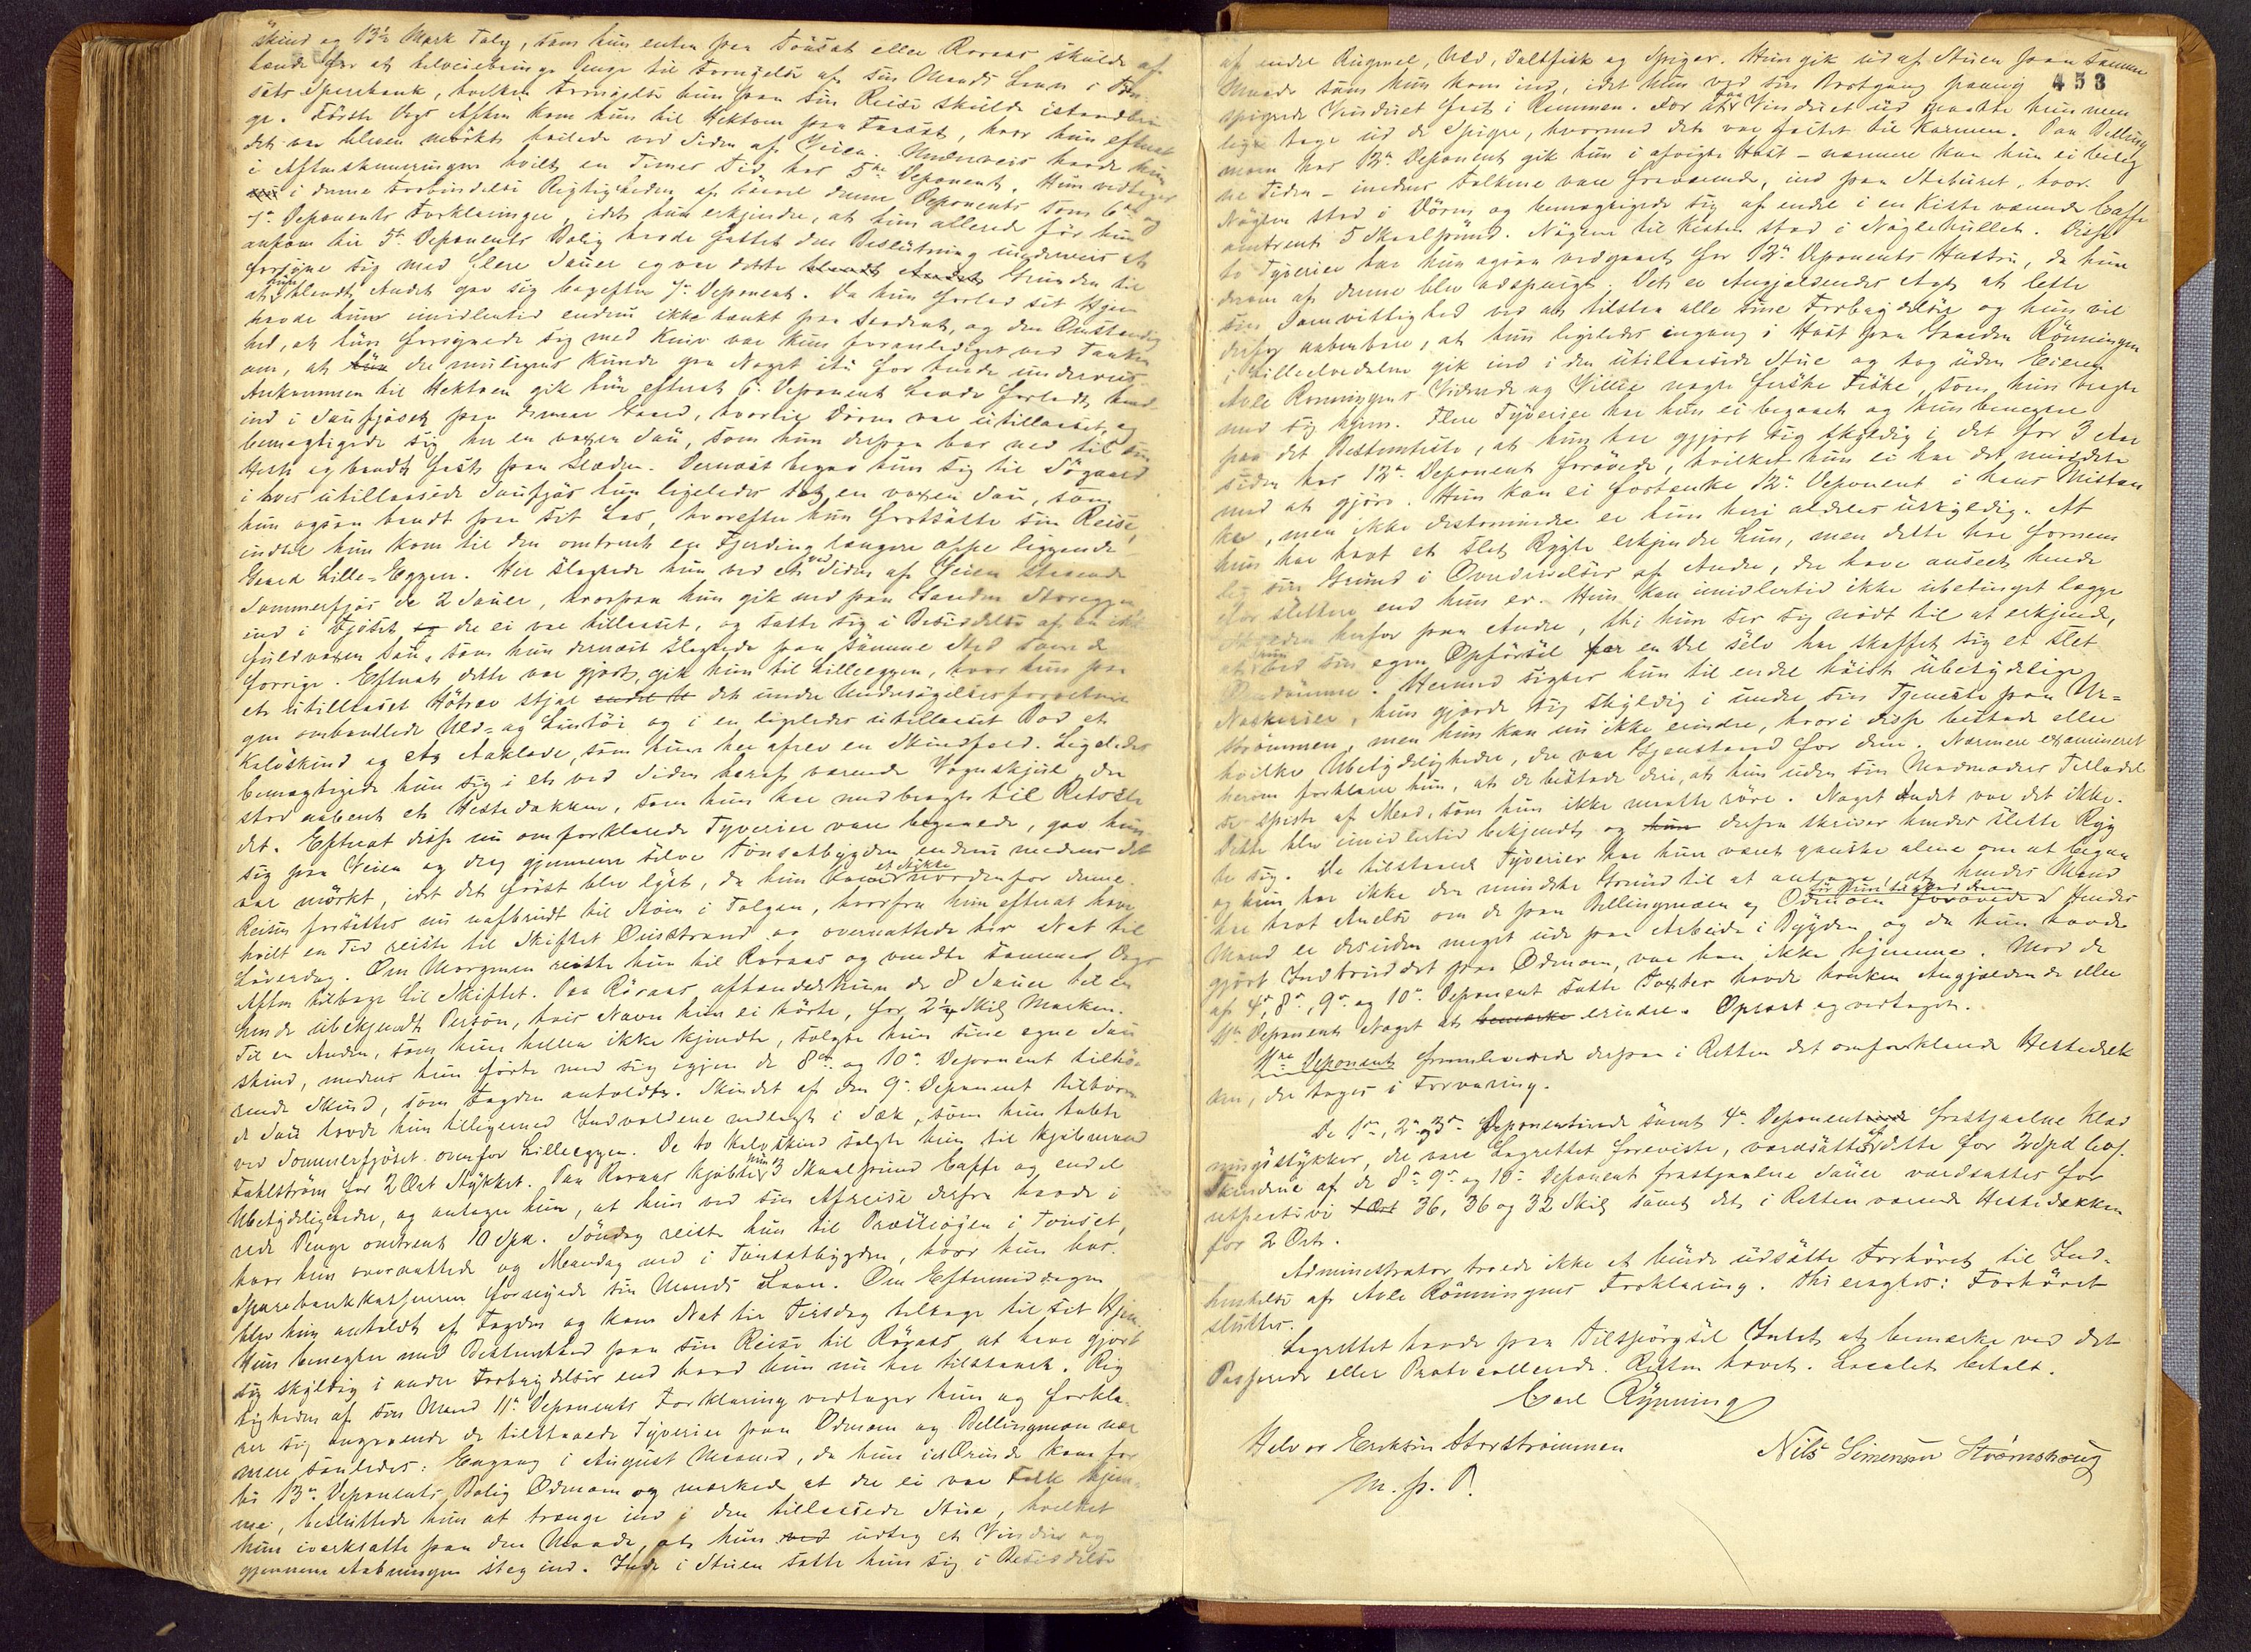 skind og 13½ Mark Talg, som hun enten paa Tönset eller Røraas skulde af
hænde for at tilveiebringe Penge til Fornyelse af sin Mands Laan i Tön-
sets Sparebank, hvilken Fornyelse hun paa sin Reise skulde istandbrin
ge. Første Dags Aften kom hun til Hektoen paa Faaset, hvor hun efterat
det var bleven mörkt hvilede ved Siden af Veien. Underveis havde hun
i Aftenskumringen hvilt en Times Tid hos 5te Deponent. Hun vedtager
i denne Forbindelse Rigtigheden af saavel denne Deponents som 6te og
7de Deponents Forklaringer, idet hun erkjender, at hun allerede för hun
ankom til 5te Deponents Bolig havde fattet den Beslutning underveis at
forsyne sig med flere Sauer og var dette Grunden til
at hun blandt Andet gav sig bagefter 7de Deponent. Da hun forlod sit Hjem
havde hun imidlertid endnu ikke tænkt paa saadant, og den Omstændig
hed, at hun forsynede sig med Kniv var kun foranlediget ved Tanken
om, at der muligens kunde gaa Noget itu for hende underveis.
Ankommen til Hektoen gik hun efterat 6te Deponent havde forladt hende
ind i Saufjöset paa denne Gaard, hvortil Dören var utillaaset, og
bemægtigede sig her en voxen Sau, som hun derpaa bar ned til sin
Hest og bandt fast paa Slæden. Dernæst begav hun sig til Sörgaard
i hvis utillaasede Saufjös hun ligeledes tog en voxen Sau, som
hun ogsaa bandt paa sit Læs, hvorefter hun fortsatte sin Reise,
indtil hun kom til den omtrent en Fjerding længere oppe liggende
Gaard Lille-Eggen. Her slagtede hun ved et ved Siden af Veien staaende
Sommerfjös de 2 Sauer, hvorpaa hun gik ned paa Gaarden Storeggen
ind i Fjöset der ei var tillaaset, og satte sig i Besiddelse af en ikke
fuldvoxen Sau, som hun dernæst slagtede paa samme Sted som de
forrige. Efterat dette var gjort, gik hun til Lilleeggen, hvor hun fra
et utillaaset Höhus stjal det under Undersögelsesforretnin
gen ombandlede Uld- og Lintöi og i en ligeledes utillaaset Bod et
Kalvskind og et Aaklæde, som hun her afrev en Skindfeld. Ligeledes
bemægtigede hun sig i et ved Siden heraf værende Vognskjul, der
stod aabent et Hestedækken, som hun har medbragt til Retsste
det. Efterat disse nu omforklarede Tyverier vare begaaede, gav hun
sig paa Veien og drog gjennem selve Tönsetbygden endnu medens det
var mörkt, idet det först blev lyst, da hun kom et Stykke nordenfor denne.
Reisen fortsattes nu uafbrudt til Moen i Tolgen, hvorfra hun efterat have
hvilt en Tid reiste til Skiftet Ousstrand og overnattede her Nat til
Löverdag. Om Morgenen reiste hun til Røraas og vendte samme Dags
Aften tilbage til Skiftet. Paa Röraas afhændede hun de 8 Sauer til en
hende ubekjendt Person, hvis Navn hun ei hörte, for 2½ Skil Marken.
Til en Anden, som hun heller ikke kjendte, solgte hun sine egne Sau
skind, medens hun förte med sig igjen de 8de og 10de Deponent tilhö-
rende Skind, som Lagden anholdt. Skindet af den 9de Deponent tilhören
de Sau havde hun tilligemed Indvoldene nedlagt i Sæk, som hun tabte
ved Sommerfjöset ovenfor Lilleeggen. De to Kalvskind solgte hun til Kjöbmand
Fahlström for 2 Ort Stykket. Paa Røraas kjöbte hun 3 Skaalpund Caffe og endel
Ubetydeligheder, og antager hun, at hun ved sin Afreise derfra havde i
rede Penge omtrent 10 Spd. Söndag reiste hun til Præstöien i Tönset,
hvor hun overnattede og Mandag ned i Tönsetbygden, hvor hun hos
Sparebankkasserern fornyede sin Mands Laan. Om Eftermiddagen
blev hun anholdt af Lagden og kom Nat til Tirsdag tilbage til sit Hjem.
Hun benegter med Bestemthed paa sin Reise til Röraas at have gjort
sig skyldig i andre Forbrydelser end hvad hun nu har tilstaaet. Rig
tigheden af sin Mand 11te Deponents Forklaring vedtager hun og forkla-
rer sig angaaende de tilstaaede Tyverier paa Ödmoen og Bellingmoen nær
mere saaledes: Engang i August Maaned, da hun i et Ærinde kom for
bi 13de Deponents Bolig Ödmoen og mærkede at der ei var Folk hjem-
me, besluttede hun at trænge ind i den tillaasede Stue, hvilket
hun iværksatte paa den Maade, at hun udtog et Vindue og
gjennem Aabningen steg ind. Inde i Stuen satte hun sig i Besiddelse
453
af endel Rugmel, Uld, Saltfisk og Spiger. Hun gik ud af Stuen paa samme
Maade som hun kom ind, idet hun ved sin Bortgang paany
spigrede Vinduet fast i Rammen. For at faa Vinduet ud maatte hun nem
lig tage ud de Spigre, hvormed det var fæstet til Karmen. Paa Belling
moen hos 12te Deponent gik hun i afvigte Höst – nærmere kan hun ei beteg
ne Tiden – imedens Folkene vare fraværende, ind paa Staburet, hvor
Nöglen stod i Dören og bemægtigede sig af endel i en Kiste værende Caffe
omtrent 5 Skaalpund. Nöglen til Kisten stod i Nöglehullet. Disse
to Tyverier har hun ogsaa vedgaaet for 12te Deponents Hustru, da hun
derom af denne blev adspurgt. Det er Angjældendes Agt at lette
sin Samvittighed ved at tilstaa alle sine Forbrydelser og hun vil
derfor aabenbare, at hun ligeledes engang i Höst paa Gaarden Rönningen
i Lilleelvedalen gik ind i den utillaasede Stue og tog uden Eieren
Arle Rönningens Vidende og Villie nogle ferske Fiske, som hun bragte
med sig hjem. Flere Tyverier har hun ei begaaet og hun benegter
paa det Bestemteste, at hun har gjort sig skyldig i det for 3 Aar
siden hos 12te Deponent forövede, hvilket hun ei har det mindste
med at gjöre. Hun kan ei fortænke 12te Deponent i hans Mistan
ke, men ikke destomindre er hun heri aldeles uskyldig. At
hun har havt et slet Rygte erkjender hun, men dette har fornem
lig sin Grund i Ondskabelser af Andre, der have anseet hende
for slettere end hun er. Hun kan imidlertid ikke ubetinget lægge
Skylden herfor paa Andre, thi hun ser sig nödt til at erkjende,
at hun ved sin egen Opförsel for en Del selv har skaffet sig et slet
Omdömme. Hermed sigter hun til endel höist ubetydelige
Naskerier, hun gjorde sig skyldig i under sin Tjeneste paa Ur-
strömmen, men hun kan nu ikke erindre, hvori disse bestode eller
hvilke Ubetydeligheder, der var Gjenstand for dem. Nærmere examineret
herom forklarer hun, at de bestode deri, at hun uden sin Madmoders Tilladel
se spiste af Mad, som hun ikke maatte röre. Noget Andet var det ikke.
Dette blev imidlertid bekjendt og derfra skriver hendes slette Ryg
te sig. De tilstaaede Tyverier har hun været ganske alene om at begaa
og hun har ikke den mindste Grund til at antage, at hendes Mand
har havt Anelse om de paa Bellingmoen og Ödmoen forövede för hun tilstod dem. Hendes
Mand er desuden meget ude paa Arbeide i Bygden og da hun havde
gjort Indbruddet paa Ödmoen, var han ikke hjemme. Mod de
af 4de, 8de, 9de og 10de Deponent satte Taxter havde hverken Angjældende eller
11te Deponent Noget at erindre. Oplæst og vedtaget.
11te Deponent fremleverede derpaa i Retten det omforklarede Hestedæk
ken, der toges i Forvaring.
De 1ste, 2den og 3die Deponent samt 4de Deponent frastjaalne Klæd
ningsstykker, der vare Lagrettet foreviste, værdsattes af dette for 2 Spd
Skindene af de 8de, 9de og 10de Deponent frastjaalne Sauer værdsattes for
respective 36, 36 og 32 Skil samt det i Retten værende Hestedækken
for 2 Ort.
Administrator troede ikke at burde udsætte Forhöret til Ind-
hentelse af Arle Rönningens Forklaring. Thi eragtes: Forhöret
sluttes.
Lagrettet havde paa Tilspörgsel Intet at bemærke ved det
Passerede eller Protocollerede. Retten hævet. Localet betalt.
Carl Rynning
Halvor Eriksen Storströmmen
Nils Simensen Strömshoug
M. p. P.